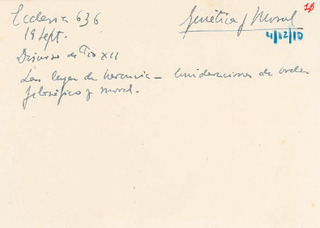 Ecclesia 636
Genética y Moral
19 Sept.
4/12/10
Discurso de Pío XII
Las leyes de herencia — Consideraciones de orden
filosófico y moral.